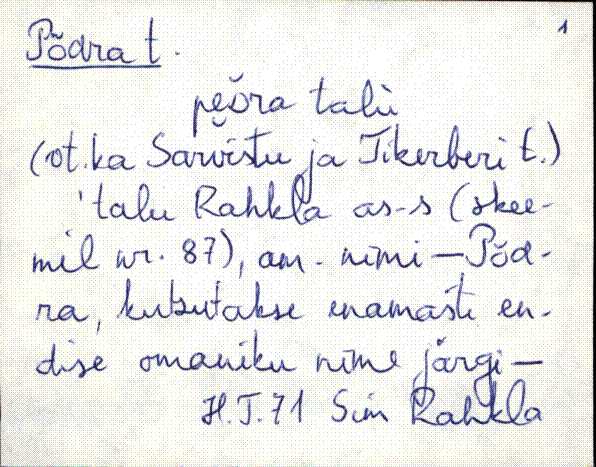 1
Põdra t.
(vt.ka Sarvistu ja Tikerberi t.)
'talu Rahkla as-s (skee-
mil nr. 87), am. nimi — Põd-
ra, kutsutakse enamasti en-
dise omaniku nime järgi —
H.T.71 Sim Rahkla